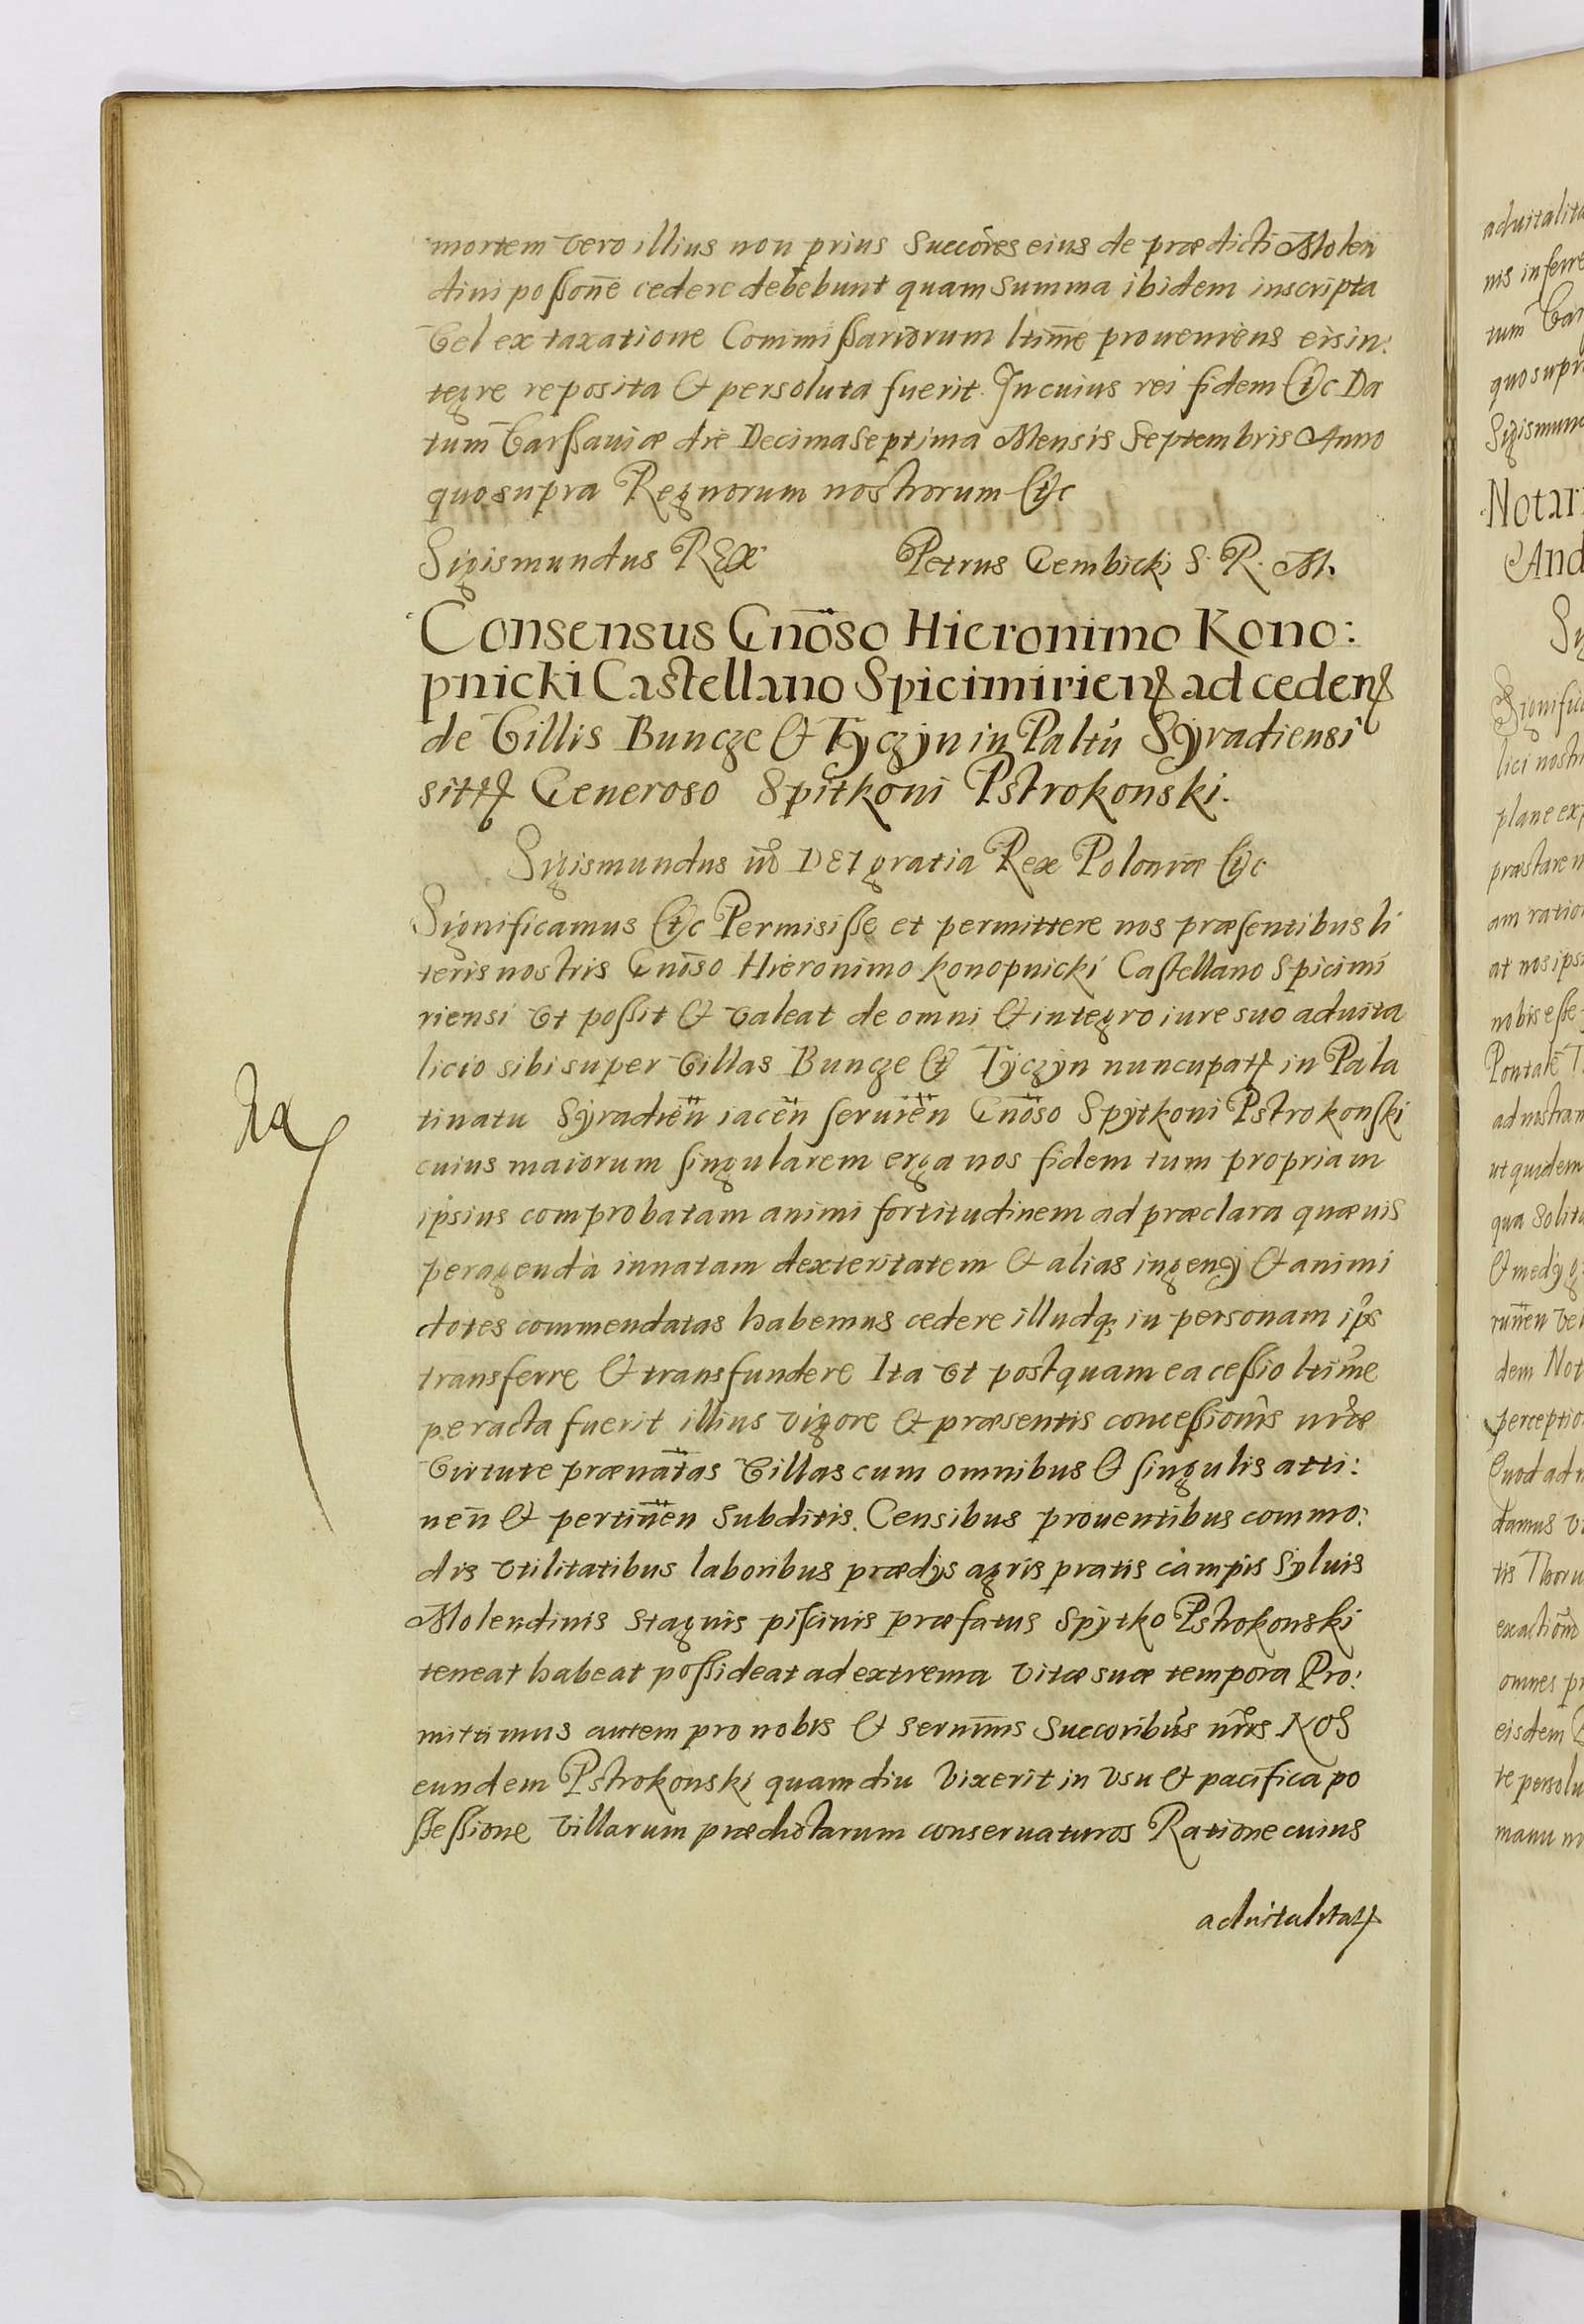 mortem vero illius non prius Succores eius de prædicti Molen
dini possone cedere debebunt quam Summa ibidem inscripta
Vel ex taxatione Commissariorum ltime proueniens eis in:
tegre reposita & persoluta fuerit. In cuius rei fidem &c Da
tum Varssauiæ die Decima Septima Mensis Septembris Anno
quo supra Regnorum nostrorum &c
Sigismundus REX Petrus Gembicki S. R. M.
Consensus Gnoso Hieronimo Kono:
pnicki Castellano Spicimirien ad ceden
de Villis Buncze & Tyczyn in Paltu Syradiensi
sitis Generoso Spitkoni Pstrokonski.
Sigismundus iiiº DEI gratia Rex Poloniæ &c
Significamus &c Permisisse et permittere nos præsentibus li
teris nostris Gnoso Hieronimo Konopnicki Castellano Spicimi
riensi Vt possit & valeat de omni & integro iure suo aduita
licio sibi super Villas Buncze & Tyczyn nuncupat in Pala
tinatu Syradien iacen seruien Gnoso Spytkoni Pstrokonski
cuius maiorum singularem erga nos fidem tum propriam
ipsius comprobatam animi fortitudinem ad præclara quæuis
peragenda innatam dexteritatem & alias ingenij & animi
dotes commendatas habemus cedere illudq; in personam ips
transferre & transfundere Ita Vt postquam ea cessio ltime
peracta fuerit illius vigore & præsentis concessionis nræ
Virtute prænatas Villas cum omnibus & singulis atti:
nen & pertinen Subditis. Censibus prouentibus commo:
dis vtilitatibus laboribus prædys agris pratis campis Syluis
Molendinis Stagnis piscinis præfatus Spytko Pstrokonski
teneat habeat possideat ad extrema vitæ suæ tempora Pro:
mittimus autem pro nobis & sernmis Succoribus nris NOS
eundem Pstrokonski quamdiu Vixerit in Vsu & pacifica po
ssessione villarum prædictarum conseruaturos Ratione cuius
aduitalitat
aduitalita
nis inferre
tum Var
quo supra
Sigismun
Notari
And
Significa
lici nostri
plane exp
præstare n
am ratio
at nos ips
nobis esse
ad nostram
ut quidem
qua Solit
dem Not
perceptio
Quod ad
damus v
tis Thoru
omnes pr
eisdem
te persolu
manu n